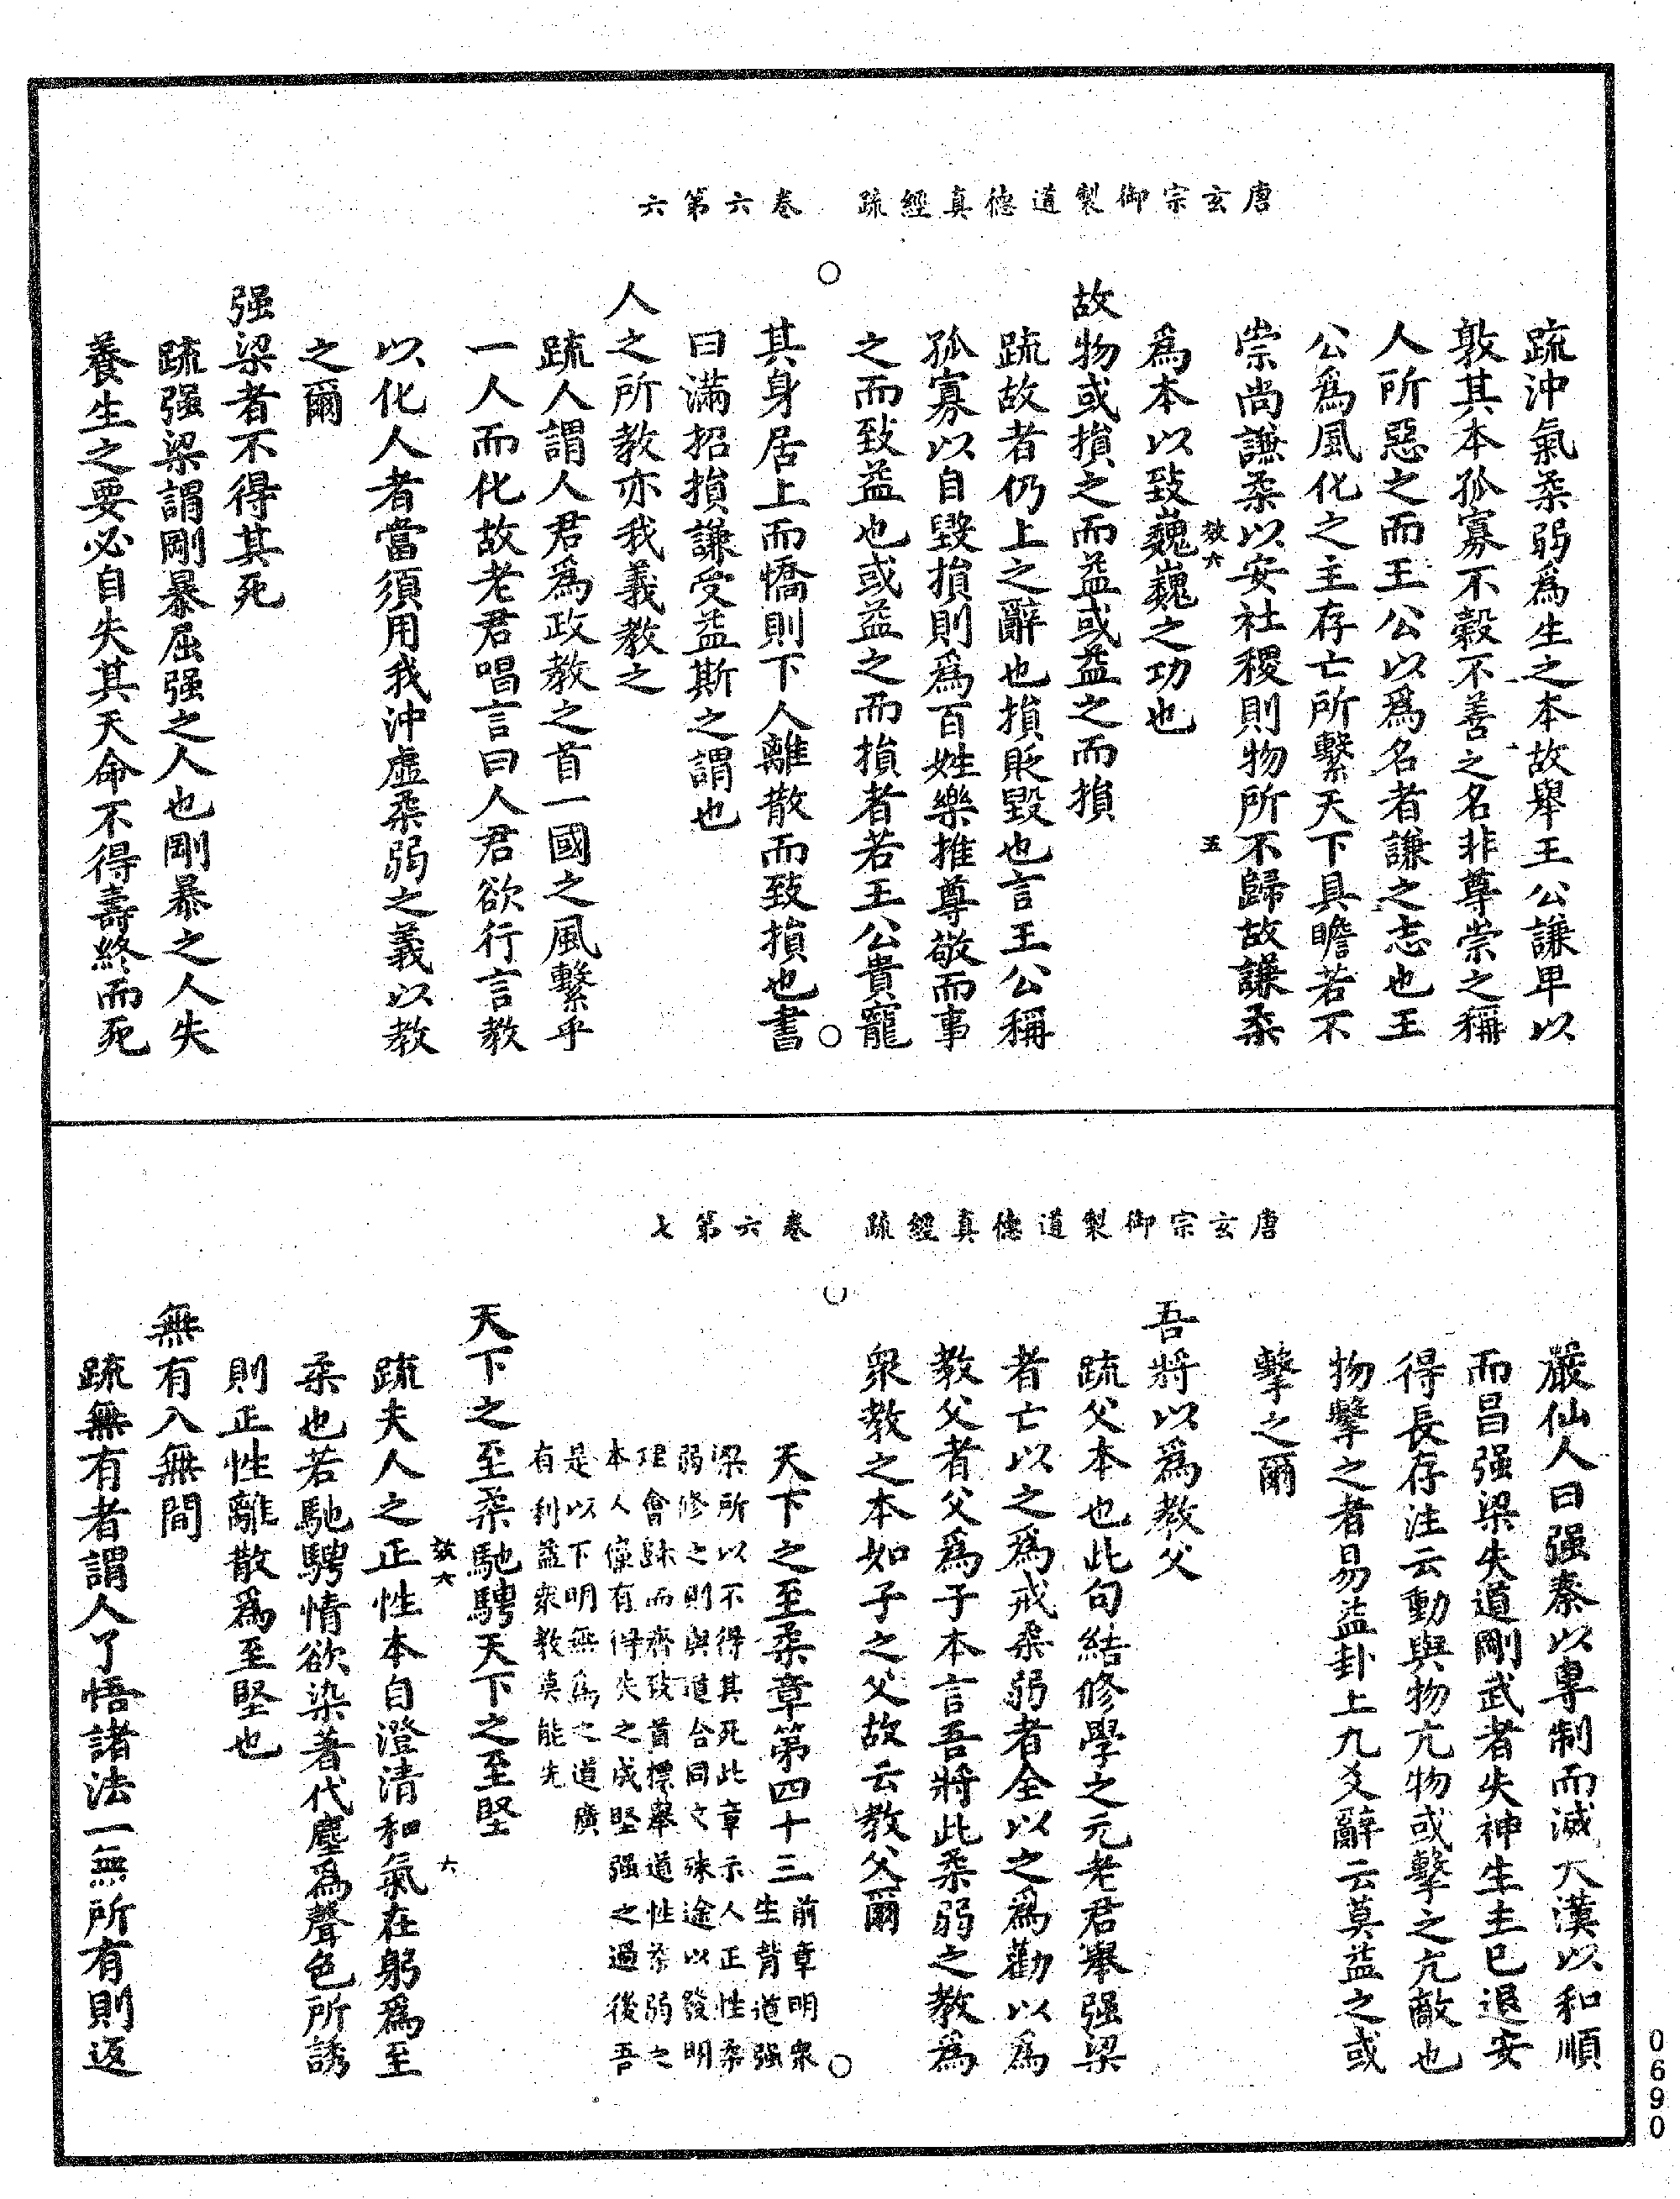 唐玄宗御製道德真經疏　卷六第六
疏沖氣柔弱爲生之本故舉王公謙卑以
敦其本孤寡不穀不善之名非尊崇之稱
人所惡之而王公以爲名者謙之志也王
公爲風化之主存亡所繫天下具瞻若不
崇尚謙柔以安社稷則物所不歸故謙柔
效六　五
爲本以致巍巍之功也
故物或損之而益或益之而損
疏故者仍上之辭也損貶毀也言王公稱
孤寡以自毀損則爲百姓樂推尊敬而事
之而致益也或益之而損者若王公貴寵
其身居上而憍則下人離散而致損也書
曰滿招損謙受益斯之謂也
人之所教亦我義教之
疏人謂人君爲政教之首一國之風繫乎
一人而化故老君唱言曰人君欲行言教
以化人者當須用我沖虛柔弱之義以教
之爾
强梁者不得其死
疏强梁謂剛暴屈强之人也剛暴之人失
養生之要必自失其天命不得壽終而死
唐玄宗御製道德真經疏　卷六第七
嚴仙人曰强秦以專制而滅大漢以和順
而昌强梁失道剛武者失神生主已退安
得長存注云動與物亢物或擊之亢敵也
物擊之者易益卦上九爻辭云莫益之或
擊之爾
吾將以爲教父
疏父本也此句結修學之元老君舉强梁
者亡以之爲戒柔弱者全以之爲勸以爲
教父者父爲子本言吾將此柔弱之教爲
衆教之本如子之父故云教父爾
天下之至柔章第四十三前章明衆
生背道强
梁所以不得其死此章示人正性柔
弱修之則與道合同文殊途以發明
理會歸而齊致首標舉道性柔弱之
本人儻有得失之成堅强之過後吾
是以下明無爲之道廣
有利益衆教莫能先
天下之至柔馳騁天下之至堅
效六　六
疏夫人之正性本自澄清和氣在躬爲至
柔也若馳騁情欲染著代塵爲聲色所誘
則正性離散爲至堅也
無有入無間
疏無有者謂人了悟諸法一無所有則返
0690